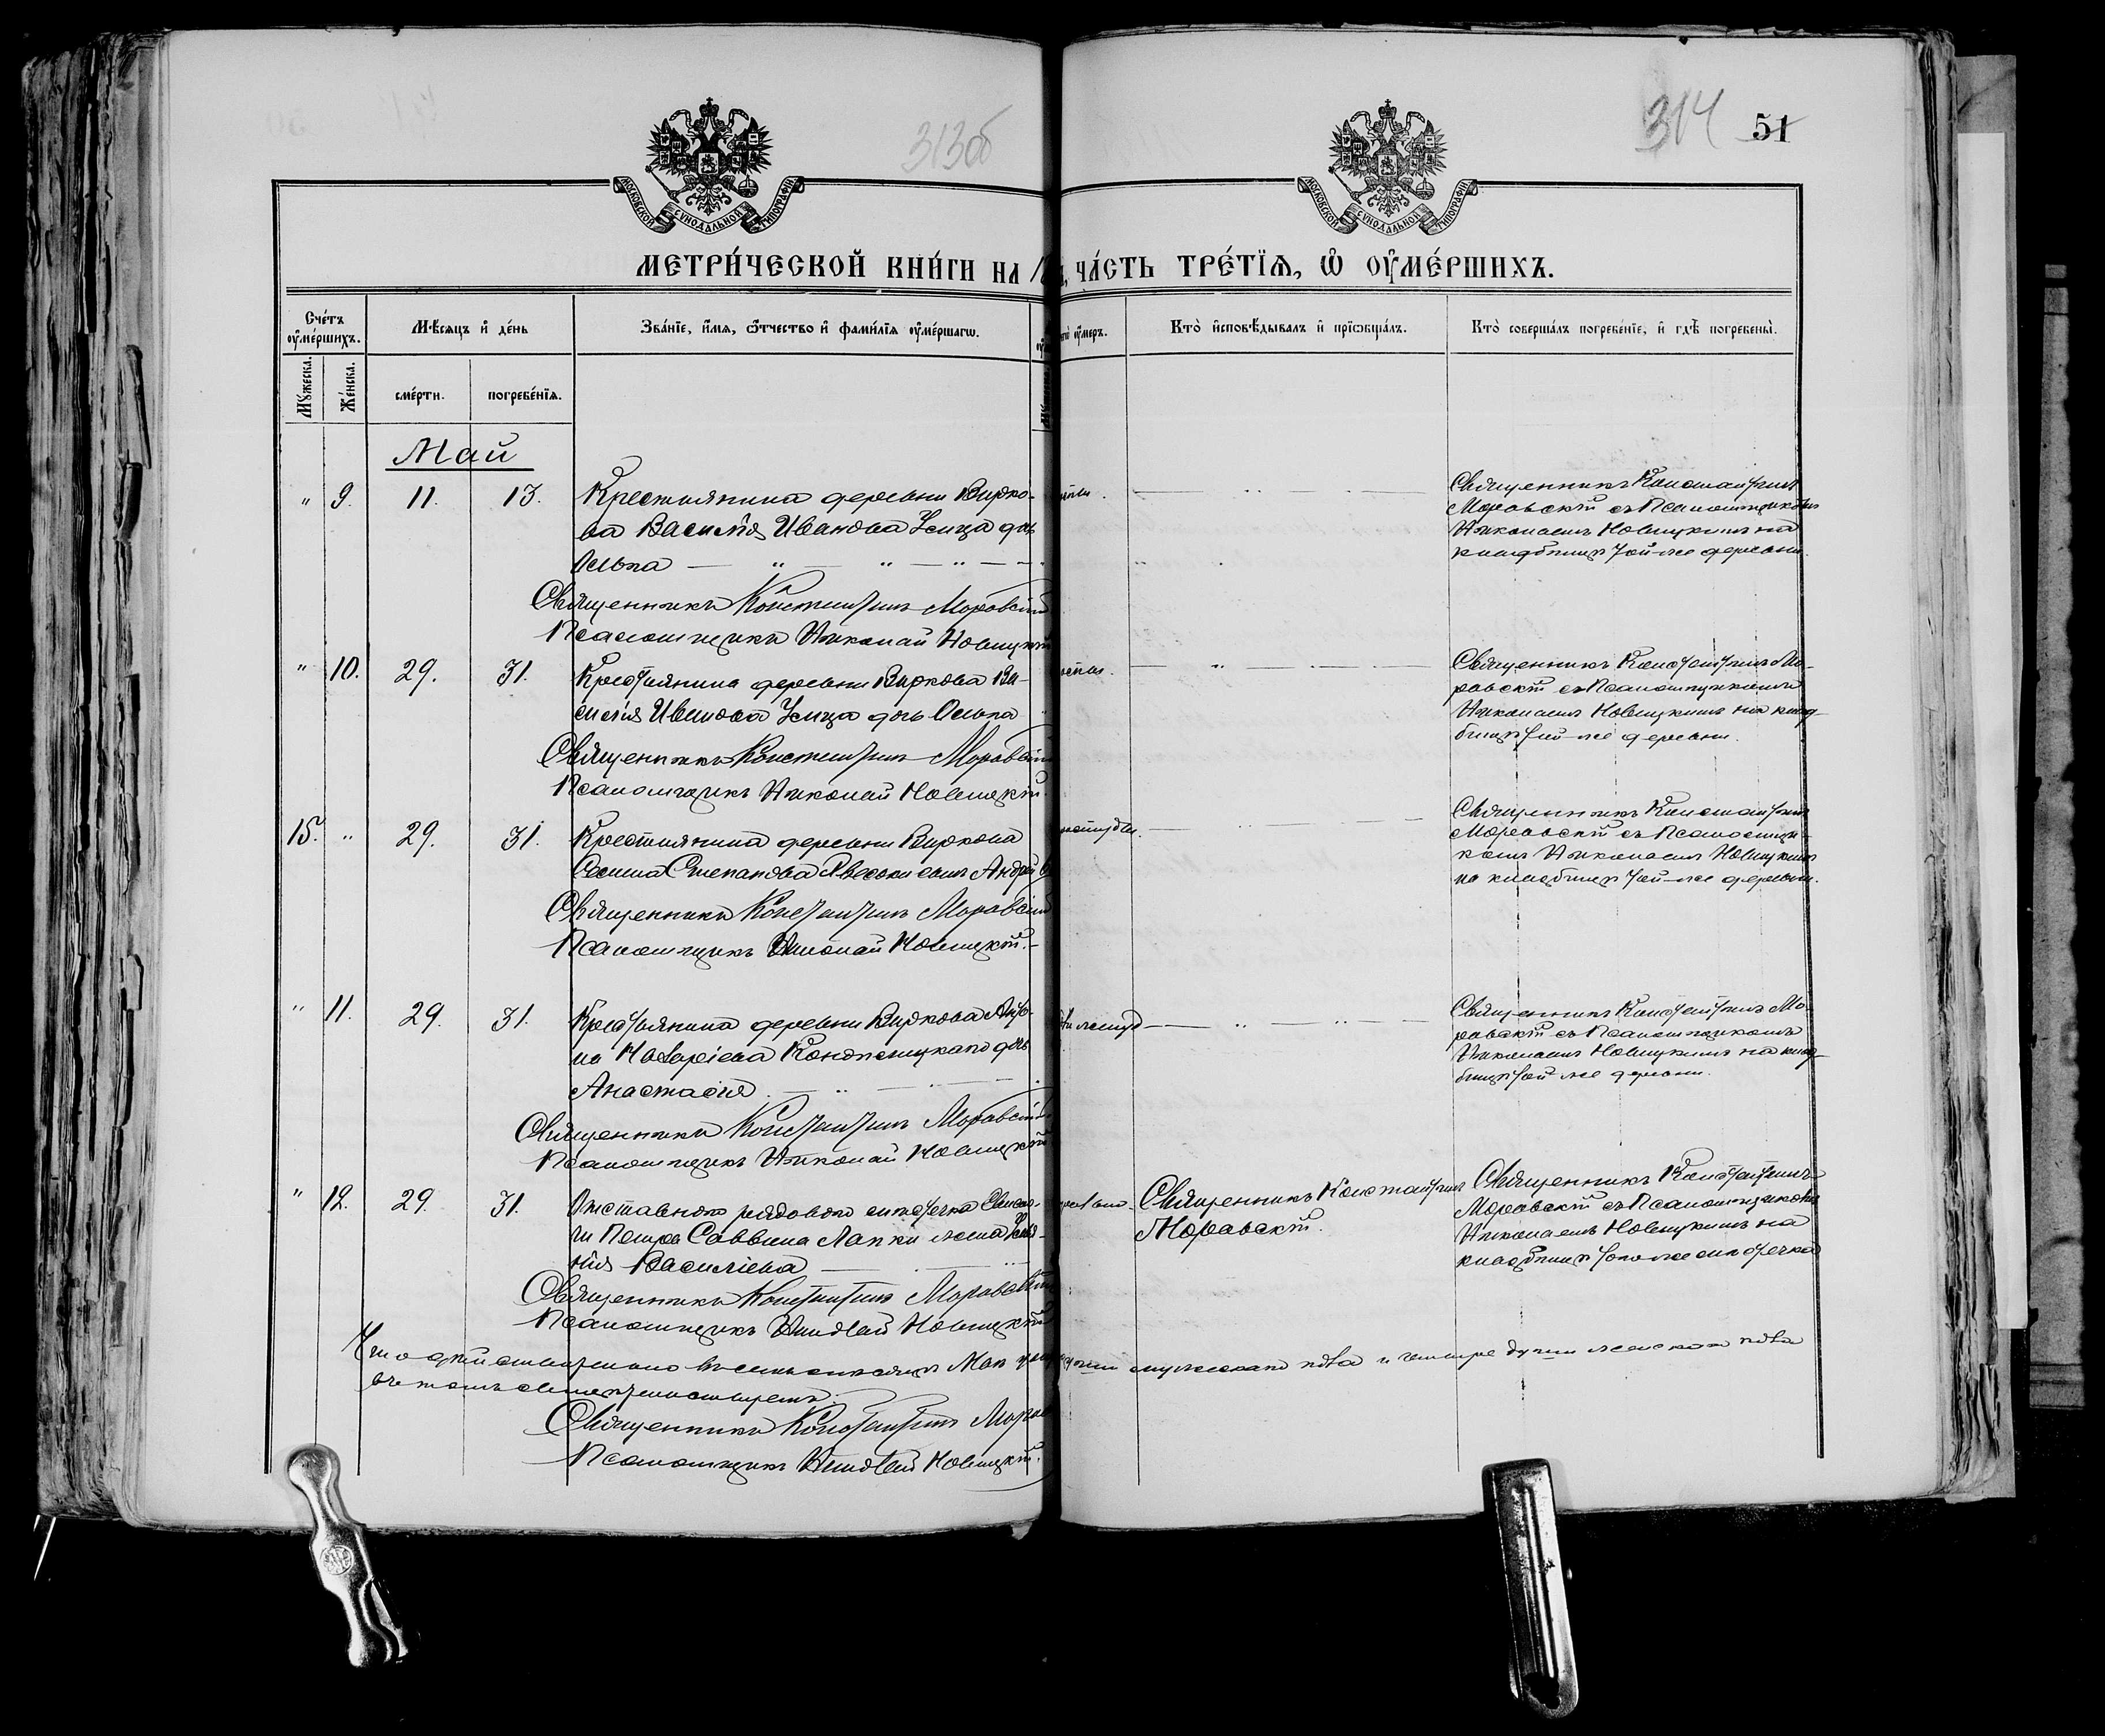 313об
314 51
МОСКОВСКОЙ СѴНОДАЛЬНОЙ ТИПОГРАФІИ
МОСКОВСКОЙ СѴНОДАЛЬНОЙ ТИПОГРАФІИ
МЕТРИ́ЧЕСКОЙ КНИ́ГИ НА 1 ЧА́СТЬ ТРЕ́ТЇѦ, Ѡ҆ ОУ҆МЕ́РШИХЪ.
Сче́тъ оу҆ме́ршихъ.
Мѣ́сяцъ и҆ де́нь
Зва́нїе, и҆́мя, ѻ҆́тчество и҆ фами́лїя оу҆ме́ршагѡ.
оу҆́меръ.
Кто̀ и҆сповѣ́дывалъ и҆ прїѡбща́лъ.
Кто̀ соверша́лъ погребе́нїе, и҆ гдѣ̀ погребены̀.
Мꙋ́жеска.
Же́нска.
сме́рти.
погребе́нїя.
Май
" 9. 11. 13. Крестьянина деревни Вирко-
ва Василія Иванова дочь
Священникъ Константинъ Моравскій
Псаломщикъ Николай Новицкій
Священникъ Константинъ
Моравскій съ Псаломщикомъ
Николаемъ Новицкимъ на
кладбищѣ той-же деревни.
" 10. 29. 31. Крестьянина деревни Виркова Ва-
силія Иванова дочь
Священникъ Константинъ Моравскій
Псаломщикъ Николай Новицкій.
Священникъ Константинъ Мо-
равскій съ Псаломщикомъ
Николаемъ Новицкимъ на клад-
бищѣ той-же деревни.
15. " 29. 31. Крестьянина деревни Виркова
Степанова сынъ Андрей
Священникъ Константинъ Моравскій
Псаломщикъ Николай Новицкій.
Священникъ Константинъ
Моравскій съ Псаломщи-
комъ Николаемъ Новицкимъ
на кладбищѣ той-же деревни.
" 11. 29. 31. Крестьянина деревни Виркова
дочь
Анастасія
Священникъ Константинъ Моравскій
Псаломщикъ Николай Новицкій
Священникъ Константинъ Мо-
равскій съ Псаломщикомъ
Николаемъ Новицкимъ на клад-
бищѣ той-же деревни.
" 12. 29. 31. Отставного рядового мѣстечка
Петра Саввина Лапки жена
Василіева
Священникъ Константинъ Моравскій
Псаломщикъ Николай Новицкій
Священникъ Константинъ
Моравскій.
Священникъ Константинъ
Моравскій съ Псаломщикомъ
Николаемъ Новицкимъ на
кладбищѣ того-же мѣстечка
Что дѣйствительно въ семъ мѣсяцѣ Маѣ мужескаго пола и четыре души женскаго пола
въ томъ свидѣтельствуемъ.
Священникъ Константинъ
Псаломщикъ Николай Новицкій.